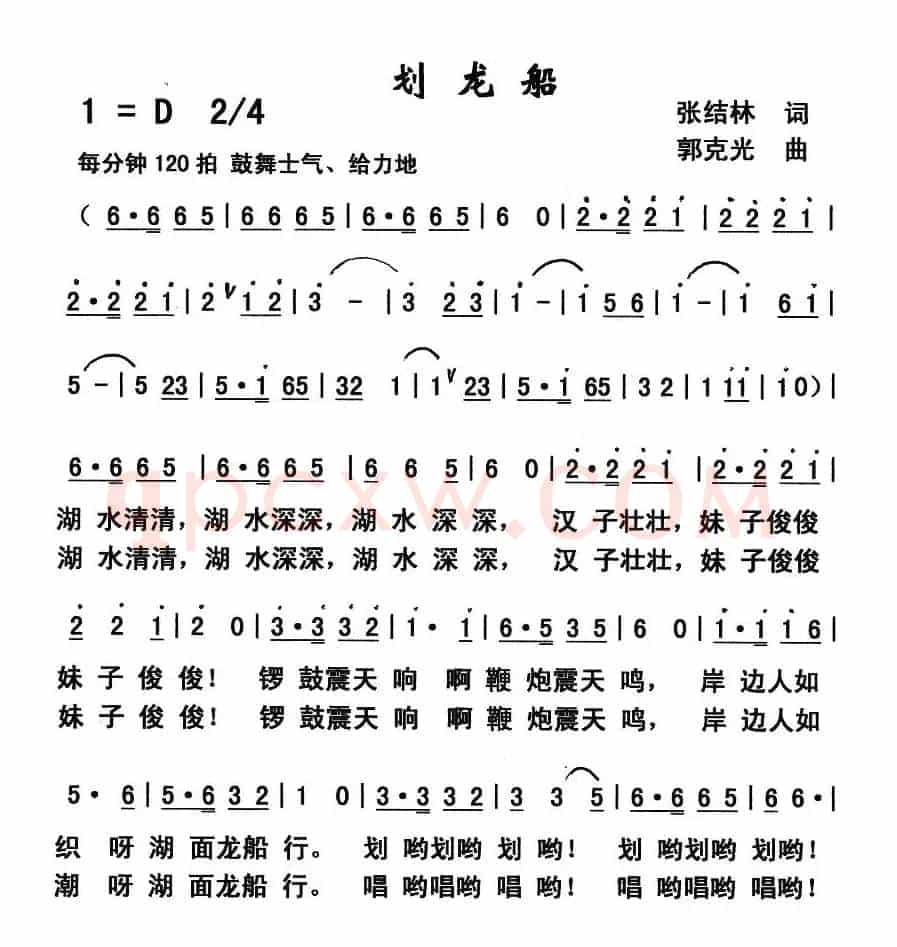 划龙船
1 = D 2/4
张结林 词
每分钟120拍 鼓舞士气、给力地
郭克光 曲
( 6·6 6 5 | 6 6 6 5 | 6·6 6 5 | 6 0 | 2·2 2 1 | 2 2 2 1 |
2·2 2 1 | 2 ∨ 1 2 | 3 - | 3 2 3 | 1 - | 1 5 6 | 1 - | 1 6 1 |
5 - | 5 23 | 5·1 65 | 32 1 | 1 ∨ 23 | 5·1 65 | 3 2 | 1 11 | 10 ) |
6·6 6 5 | 6·6 6 5 | 6 6 5 | 6 0 | 2·2 2 1 | 2·2 2 1 |
湖 水清清，湖 水深深，湖 水 深 深， 汉 子壮壮，妹 子俊俊
湖 水清清，湖 水深深，湖 水 深 深， 汉 子壮壮，妹 子俊俊
qpcxw.com
2 2 1 | 2 0 | 3·3 3 2 | 1· 1 | 6·5 3 5 | 6 0 | 1·1 1 6 |
妹 子 俊 俊！ 锣 鼓震天 响 啊 鞭 炮震天 鸣， 岸 边人如
妹 子 俊 俊！ 锣 鼓震天 响 啊 鞭 炮震天 鸣， 岸 边人如
5· 6 | 5·6 3 2 | 1 0 | 3·3 3 2 | 3 3 5 | 6·6 6 5 | 6 6· |
织 呀 湖 面龙船 行。 划 哟划哟 划 哟！ 划 哟划哟 划哟！
潮 呀 湖 面龙船 行。 唱 哟唱哟 唱 哟！ 唱 哟唱哟 唱哟！